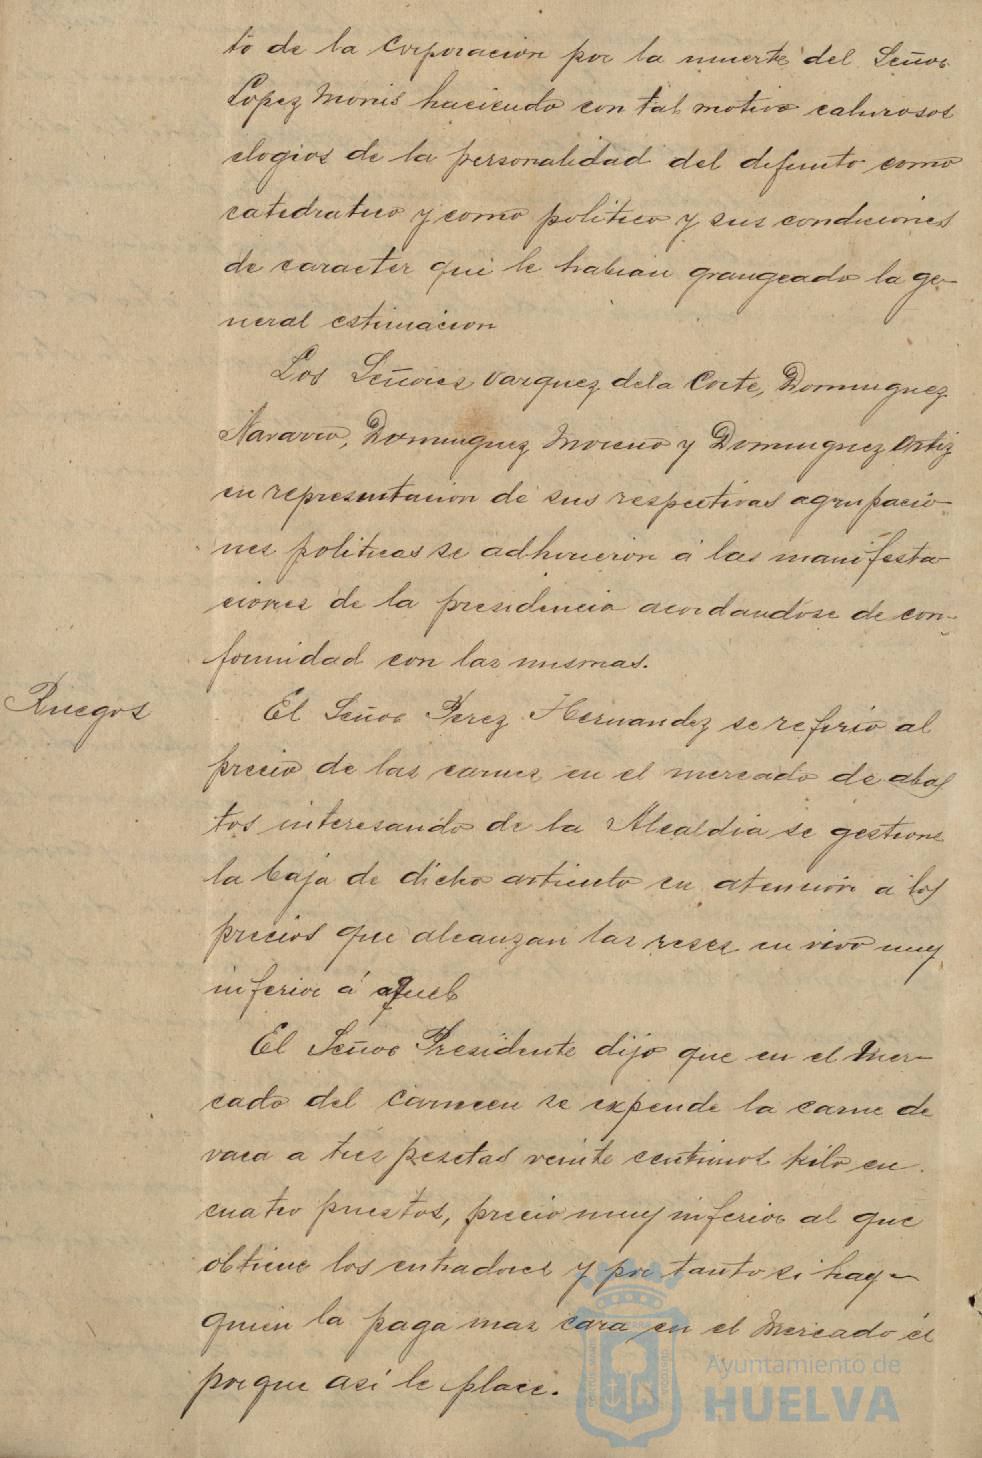 to de la Corporacion por la muerte del Señor
Lopez Monis haciendo con tal motivo calurosos
elogios de la personalidad del difunto como
catedratico y como politico y sus condiciones
de caracter que le habian grangeado la ge-
neral estimacion
Los Señores Vazquez de la Corte, Dominguez
Navarro, Dominguez Moreno y Dominguez Ortiz
en representacion de sus respectivas agrupacio-
nes politicas se adhirieron á las manifesta-
ciones de la presidencia acordandose de con-
formidad con las mismas.
Ruegos
El Señor Perez Hernandez se refirio al
precio de las carnes en el mercado de abas
tos interesando de la Alcaldia se gestione
la baja de dicho articulo en atencion a los
precios que alcanzan las reses en vivo muy
inferior á aquel
El Señor Presidente dijo que en el Mer-
cado del Carmen se expende la carne de
vaca a tres pesetas veinte centimos kilo en
cuatro puestos, precio muy inferior al que
obtiene los entradores y por tanto si hay
quien la paga mas cara en el Mercado es
porque asi le place.
Ayuntamiento de
HUELVA